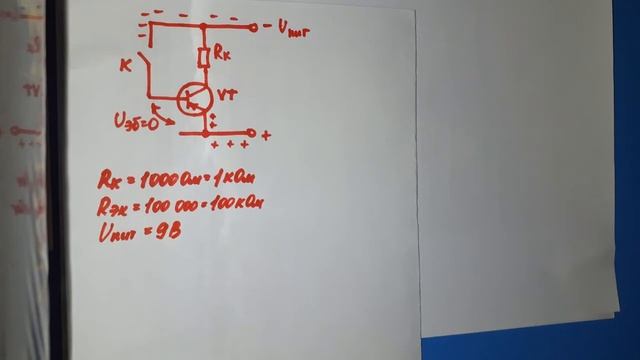 - Uпит
Rк
К
VT
Uэб=0
+
+ + +
Rк = 1000 Ом = 1 кОм
Rэк = 100 000 = 100 кОм
Uпит = 9В